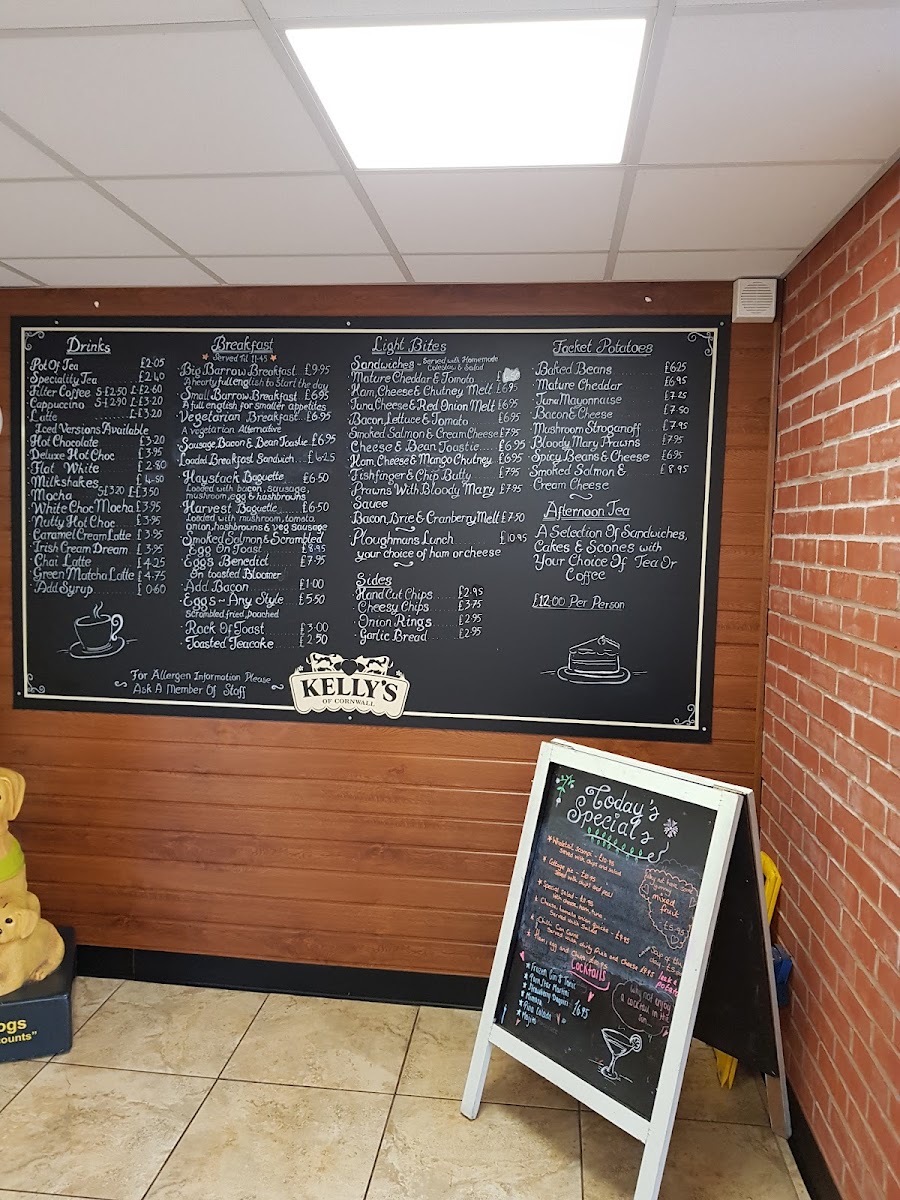 Drinks
Pot Of Tea £2.05
Speciality Tea £2.40
Filter Coffee S £2.50 L £2.60
Cappuccino S £2.90 L £3.20
Latte L £3.20
Iced Versions Available
Hot Chocolate £3.20
Deluxe Hot Choc £3.95
Flat White £2.80
Milkshakes £4.50
Mocha S £3.20 L £3.50
White Choc Mocha £3.95
Nutty Hot Choc £3.95
Caramel Cream Latte £3.95
Irish Cream Dream £3.95
Chai Latte £4.25
Green Matcha Latte £4.75
Add Syrup £0.60
Breakfast
Served Til 11.45
Big Barrow Breakfast £9.95
A hearty full english to start the day
Small Barrow Breakfast £6.95
A full english for smaller appetites
Vegetarian Breakfast £6.95
A vegetarian Alternative
Sausage, Bacon & Bean Toastie £6.95
Loaded Breakfast Sandwich £6.25
Haystack Baguette £6.50
Loaded with bacon, sausage,
mushroom, egg & hashbrowns
Harvest Baguette £6.50
Loaded with mushroom, tomato
onion, hashbrowns & veg sausage
Smoked Salmon & Scrambled
Egg On Toast £8.95
Eggs Benedict £7.95
On toasted Bloomer
Add Bacon £1.00
Eggs ~ Any Style £5.50
Scrambled, fried, poached
Rack Of Toast £3.00
Toasted Teacake £2.50
Light Bites
Sandwiches ~ Served with Homemade
Coleslaw & Salad
Mature Cheddar & Tomato
Ham, Cheese & Chutney Melt £6.95
Tuna, Cheese & Red Onion Melt £6.95
Bacon, Lettuce & Tomato £6.95
Smoked Salmon & Cream Cheese £7.95
Cheese & Bean Toastie £6.95
Ham, Cheese & Mango Chutney £6.95
Fishfinger & Chip Butty £7.95
Prawns With Bloody Mary £7.95
Sauce
Bacon, Brie & Cranberry Melt £7.50
Ploughmans Lunch £10.95
your choice of ham or cheese
Sides
Hand Cut Chips £2.95
Cheesy Chips £3.75
Onion Rings £2.95
Garlic Bread £2.95
Jacket Potatoes
Baked Beans £6.25
Mature Cheddar £6.95
Tuna Mayonnaise £7.25
Bacon & Cheese £7.50
Mushroom Stroganoff £7.95
Bloody Mary Prawns £7.95
Spicy Beans & Cheese £6.95
Smoked Salmon & £8.95
Cream Cheese
Afternoon Tea
A Selection Of Sandwiches,
Cakes & Scones with
Your Choice Of Tea Or
Coffee
£12.00 Per Person
For Allergen Information Please
Ask A Member Of Staff
KELLY'S
OF CORNWALL
Today's
Specials
Wholetail Scampi - £10.95
Served with chips and salad
Cottage pie - £8.95
Served with chips and peas
Special Salad -
with cheese, ham, tuna
Cheese, tomato onion quiche - £9.95
Served with salad
Chilli Con Carne
Served with dirty fries and cheese £9.95
Ham, egg and Chips
mixed
fruit
£5.95
Soup of the
day
Cocktails
Frozen Gin & Tonic
Porn Star Martini
Strawberry Daiquiri £6.95
Mimosa
Pina Colada
Mojito
Why not enjoy
a cocktail in the
sun
ogs
ounts"